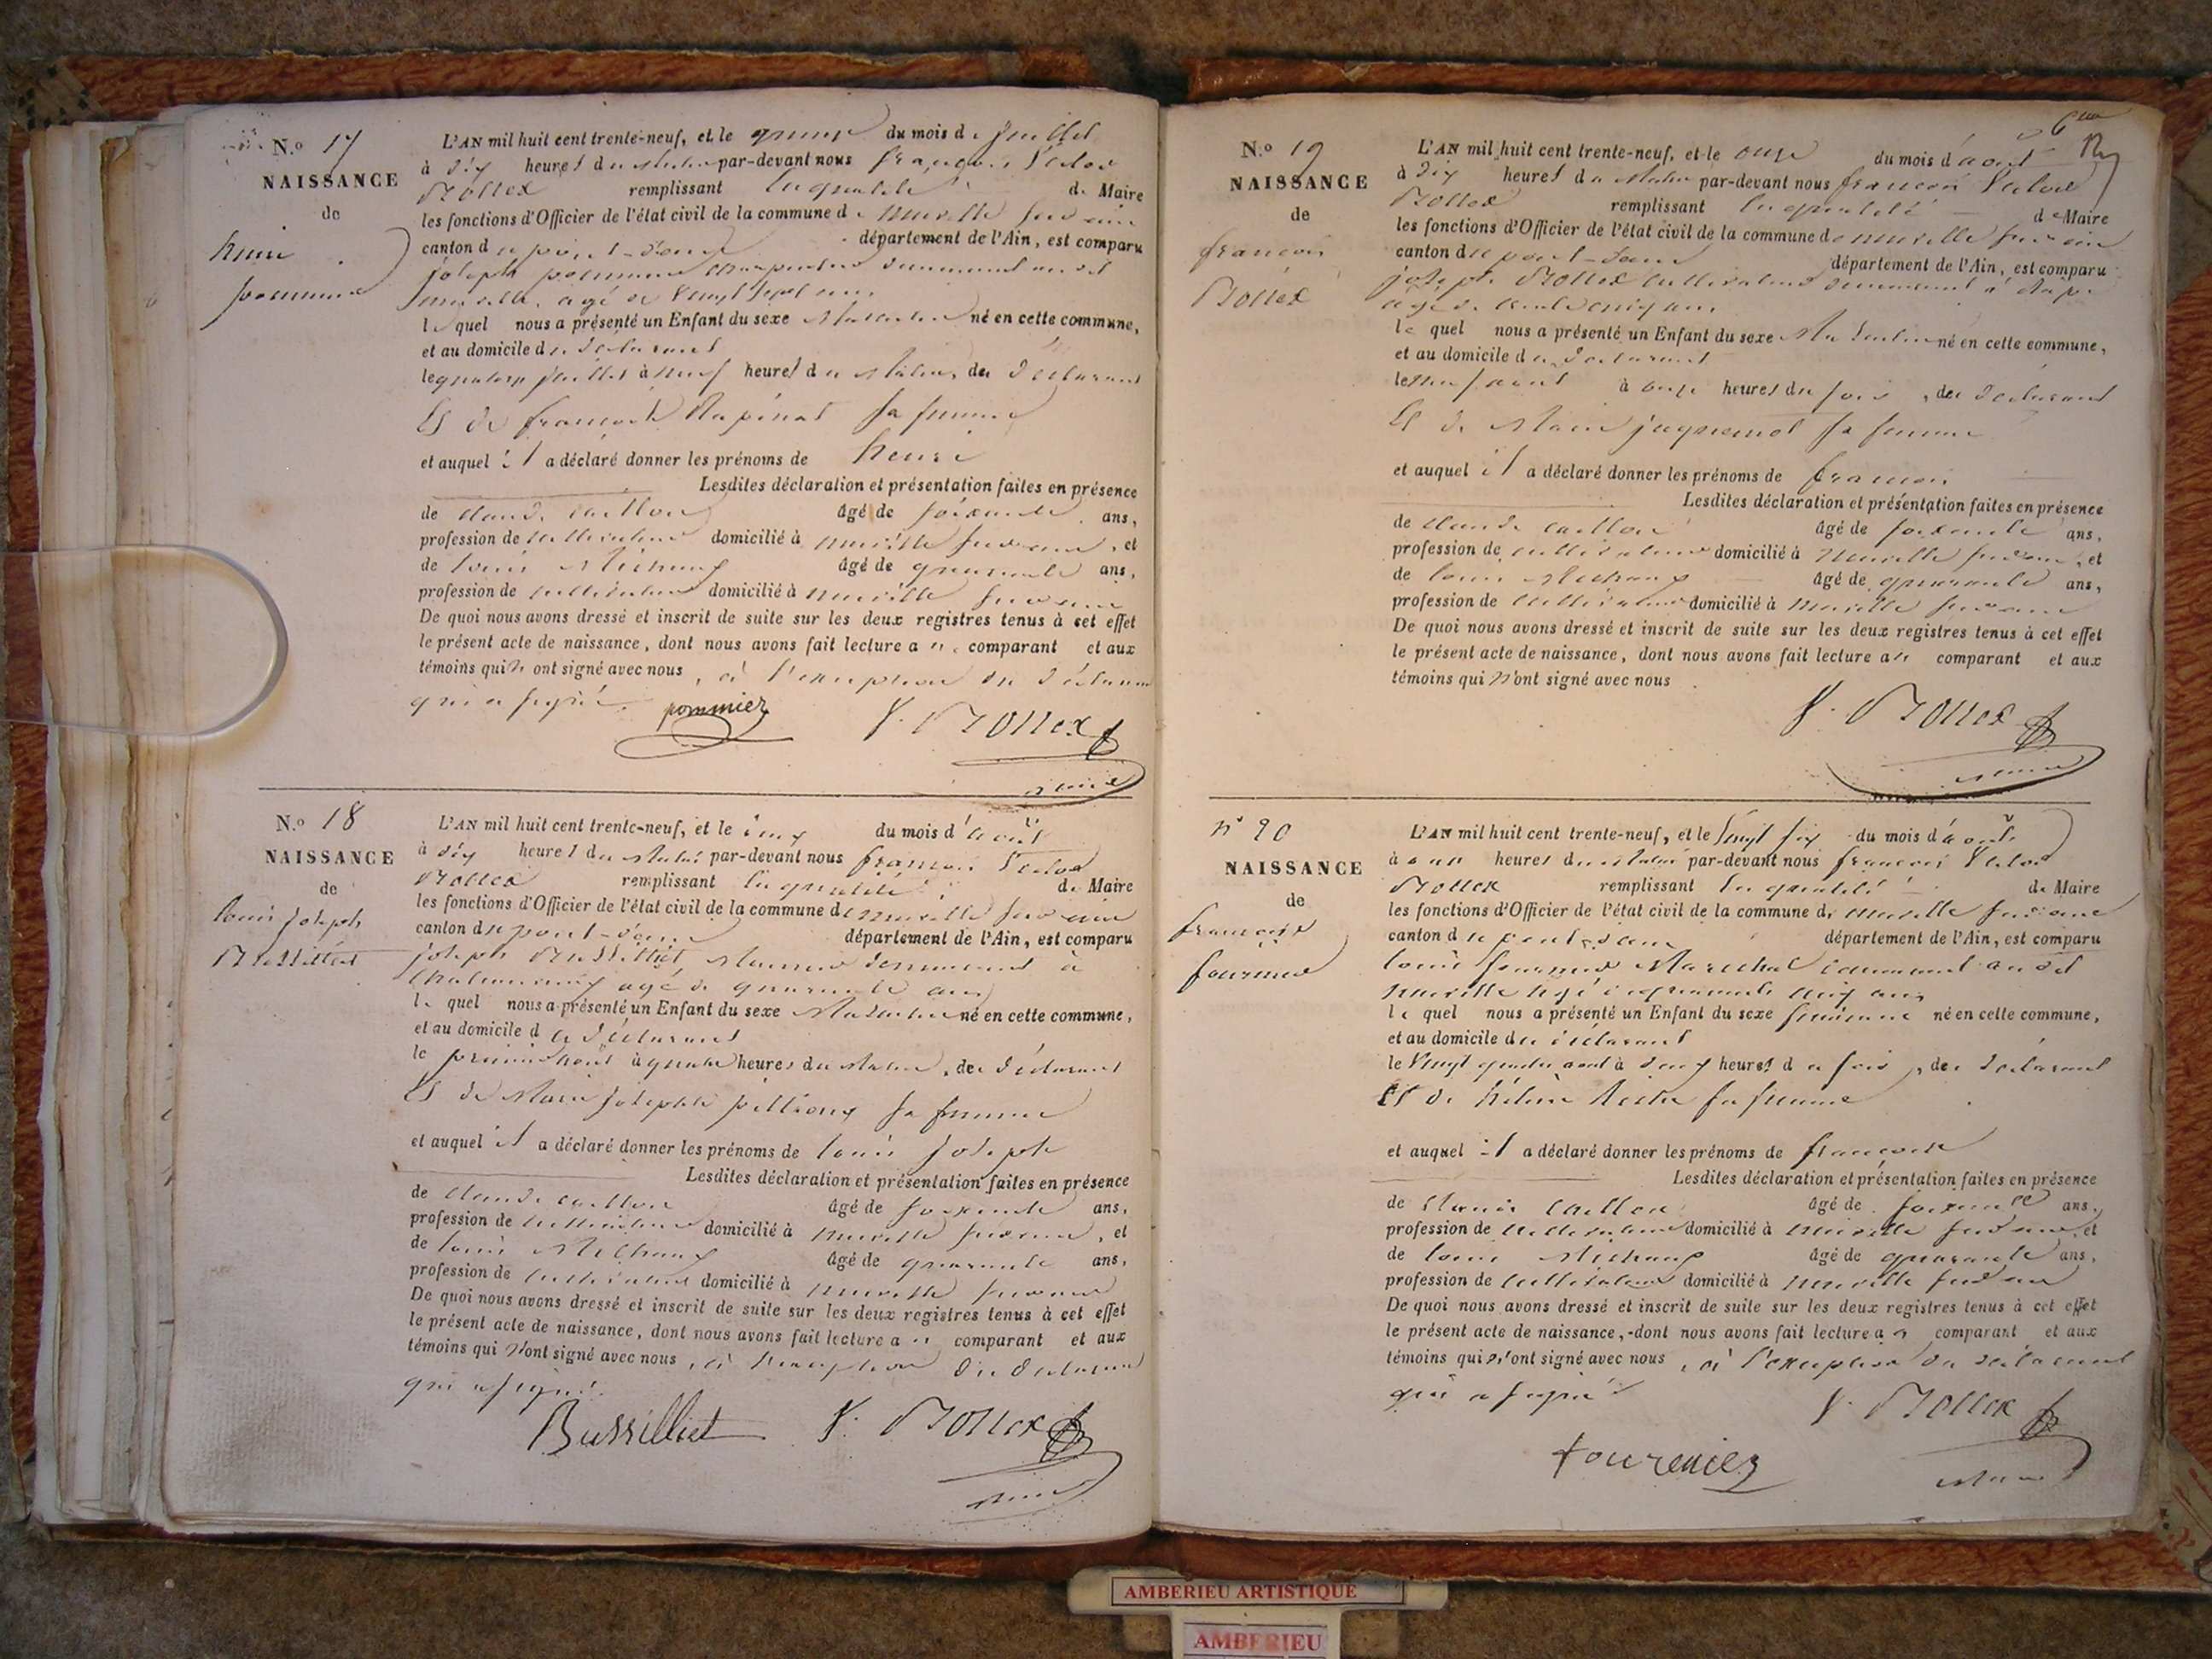 N.o 17
NAISSANCE
de
henri
pommier
L'AN mil huit cent trente-neuf, et le quinze du mois de juillet
à dix heures du matin par-devant nous françois victor
Bollex remplissant la qualité de Maire
les fonctions d'Officier de l'état civil de la commune de neuville sur ain
canton de pont-d'ain département de l'Ain, est comparu
joseph pommier demeurant au dit
neuville, agé de vingt sept ans
lequel nous a présenté un Enfant du sexe Masculin né en cette commune,
et au domicile du déclarant
le quatorze juillet à neuf heures du Matin, du déclarant
Et de françoise Rapinat sa femme
et auquel il a déclaré donner les prénoms de henri
Lesdites déclaration et présentation faites en présence
de claude caillon âgé de soixante ans,
profession de cultivateur domicilié à neuville sur ain, et
de louis Michaux âgé de quarante ans,
profession de cultivateur domicilié à neuville sur ain
De quoi nous avons dressé et inscrit de suite sur les deux registres tenus à cet effet
le présent acte de naissance, dont nous avons fait lecture au comparant et aux
témoins qui n'ont signé avec nous, à l'exception du déclarant
qui a signé.
pommier V. Bollex
maire
N.o 18
NAISSANCE
de
louis joseph
Bussilliet
L'AN mil huit cent trente-neuf, et le du mois d'août
à dix heures du matin par-devant nous françois victor
Bollex remplissant la qualité de Maire
les fonctions d'Officier de l'état civil de la commune de neuville sur ain
canton de pont-d'ain département de l'Ain, est comparu
joseph Bussilliet demeurant à
agé de quarante ans
lequel nous a présenté un Enfant du sexe Masculin né en cette commune,
et au domicile du déclarant
le premier août à quatre heures du matin, du déclarant
Et de Marie josephte sa femme
et auquel il a déclaré donner les prénoms de louis joseph
Lesdites déclaration et présentation faites en présence
de claude caillon âgé de soixante ans,
profession de cultivateur domicilié à neuville sur ain, et
de louis Michaux âgé de quarante ans,
profession de cultivateur domicilié à neuville sur ain
De quoi nous avons dressé et inscrit de suite sur les deux registres tenus à cet effet
le présent acte de naissance, dont nous avons fait lecture au comparant et aux
témoins qui n'ont signé avec nous, à l'exception du déclarant
qui a signé.
Bussilliet V. Bollex
maire
6me
N.o 19
NAISSANCE
de
françois
Bollex
L'AN mil huit cent trente-neuf, et le onze du mois d'août
à dix heures du Matin par-devant nous françois victor
Bollex remplissant la qualité de Maire
les fonctions d'Officier de l'état civil de la commune de neuville sur ain
canton de pont-d'ain département de l'Ain, est comparu
joseph Bollex cultivateur demeurant à
agé de trente cinq ans
lequel nous a présenté un Enfant du sexe Masculin né en cette commune,
et au domicile du déclarant
le neuf août à onze heures du soir, du déclarant
Et de Marie juquemot sa femme
et auquel il a déclaré donner les prénoms de françois
Lesdites déclaration et présentation faites en présence
de claude caillon âgé de soixante ans,
profession de cultivateur domicilié à Neuville sur ain, et
de louis Michaux âgé de quarante ans,
profession de cultivateur domicilié à Neuville sur ain
De quoi nous avons dressé et inscrit de suite sur les deux registres tenus à cet effet
le présent acte de naissance, dont nous avons fait lecture au comparant et aux
témoins qui n'ont signé avec nous
V. Bollex
maire
n° 20
NAISSANCE
de
françoise
fournier
L'AN mil huit cent trente-neuf, et le vingt six du mois d'août
à onze heures du matin par-devant nous françois victor
Bollex remplissant la qualité de Maire
les fonctions d'Officier de l'état civil de la commune de neuville sur ain
canton de pont-d'ain département de l'Ain, est comparu
louis fournier Marechal demeurant au dit
neuville agé de quarante cinq ans
lequel nous a présenté un Enfant du sexe féminin né en cette commune,
et au domicile du déclarant
le vingt quatre août à deux heures du soir, du déclarant
Et de hélène sa femme
et auquel il a déclaré donner les prénoms de françoise
Lesdites déclaration et présentation faites en présence
de claude caillon âgé de soixante ans,
profession de cultivateur domicilié à neuville sur ain, et
de louis Michaux âgé de quarante ans,
profession de cultivateur domicilié à neuville sur ain
De quoi nous avons dressé et inscrit de suite sur les deux registres tenus à cet effet
le présent acte de naissance, dont nous avons fait lecture au comparant et aux
témoins qui n'ont signé avec nous, à l'exception du déclarant
qui a signé
V. Bollex
fournier maire
AMBERIEU ARTISTIQUE
AMBERIEU